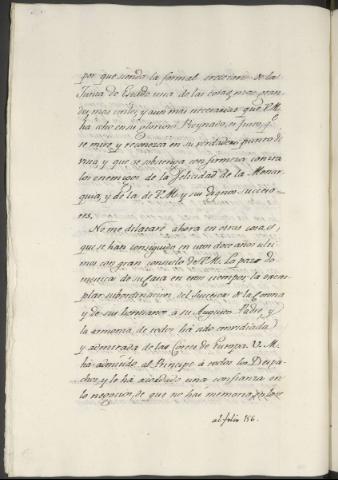 por que siendo la formal ereccion de la
Junta de Estado una de las cosas mas gran
des, mas utiles, y aun mas necesarias que V.M.
ha hecho en su glorioso Reynado, es justo, q.e
se mire, y reconozca en su verdadero punto de
vista y que se sobstenga con firmeza contra
los enemigos de la felicidad de la Monar
quia, y de la de V.M. y sus dignos succeso
res.
No me dilataré ahora en otras cosas,
que se han conseguido en estos doce años ulti
mos con gran consuelo de V.M. La paz do
mestica de su Casa en estos tiempos; la exem
plar subordinacion del Succesor de la Corona
y de sus hermanos a su Augusto Padre, y
la armonia de todos, ha sido envidiada
y admirada de las Cortes de Europa. V.M.
ha admitido al Principe à todos los Despa
chos, y le ha acordado una confianza en
los negocios, de que no hai memoria en los
al folio 156.